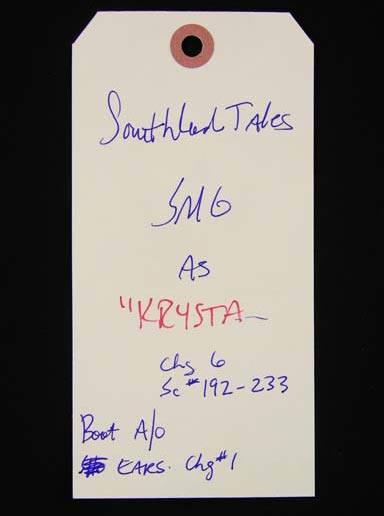 Southland Tales
SMG
AS
"KRYSTA
Chg 6
Sc# 192-233
Boot A/O
EARS. Chg #1